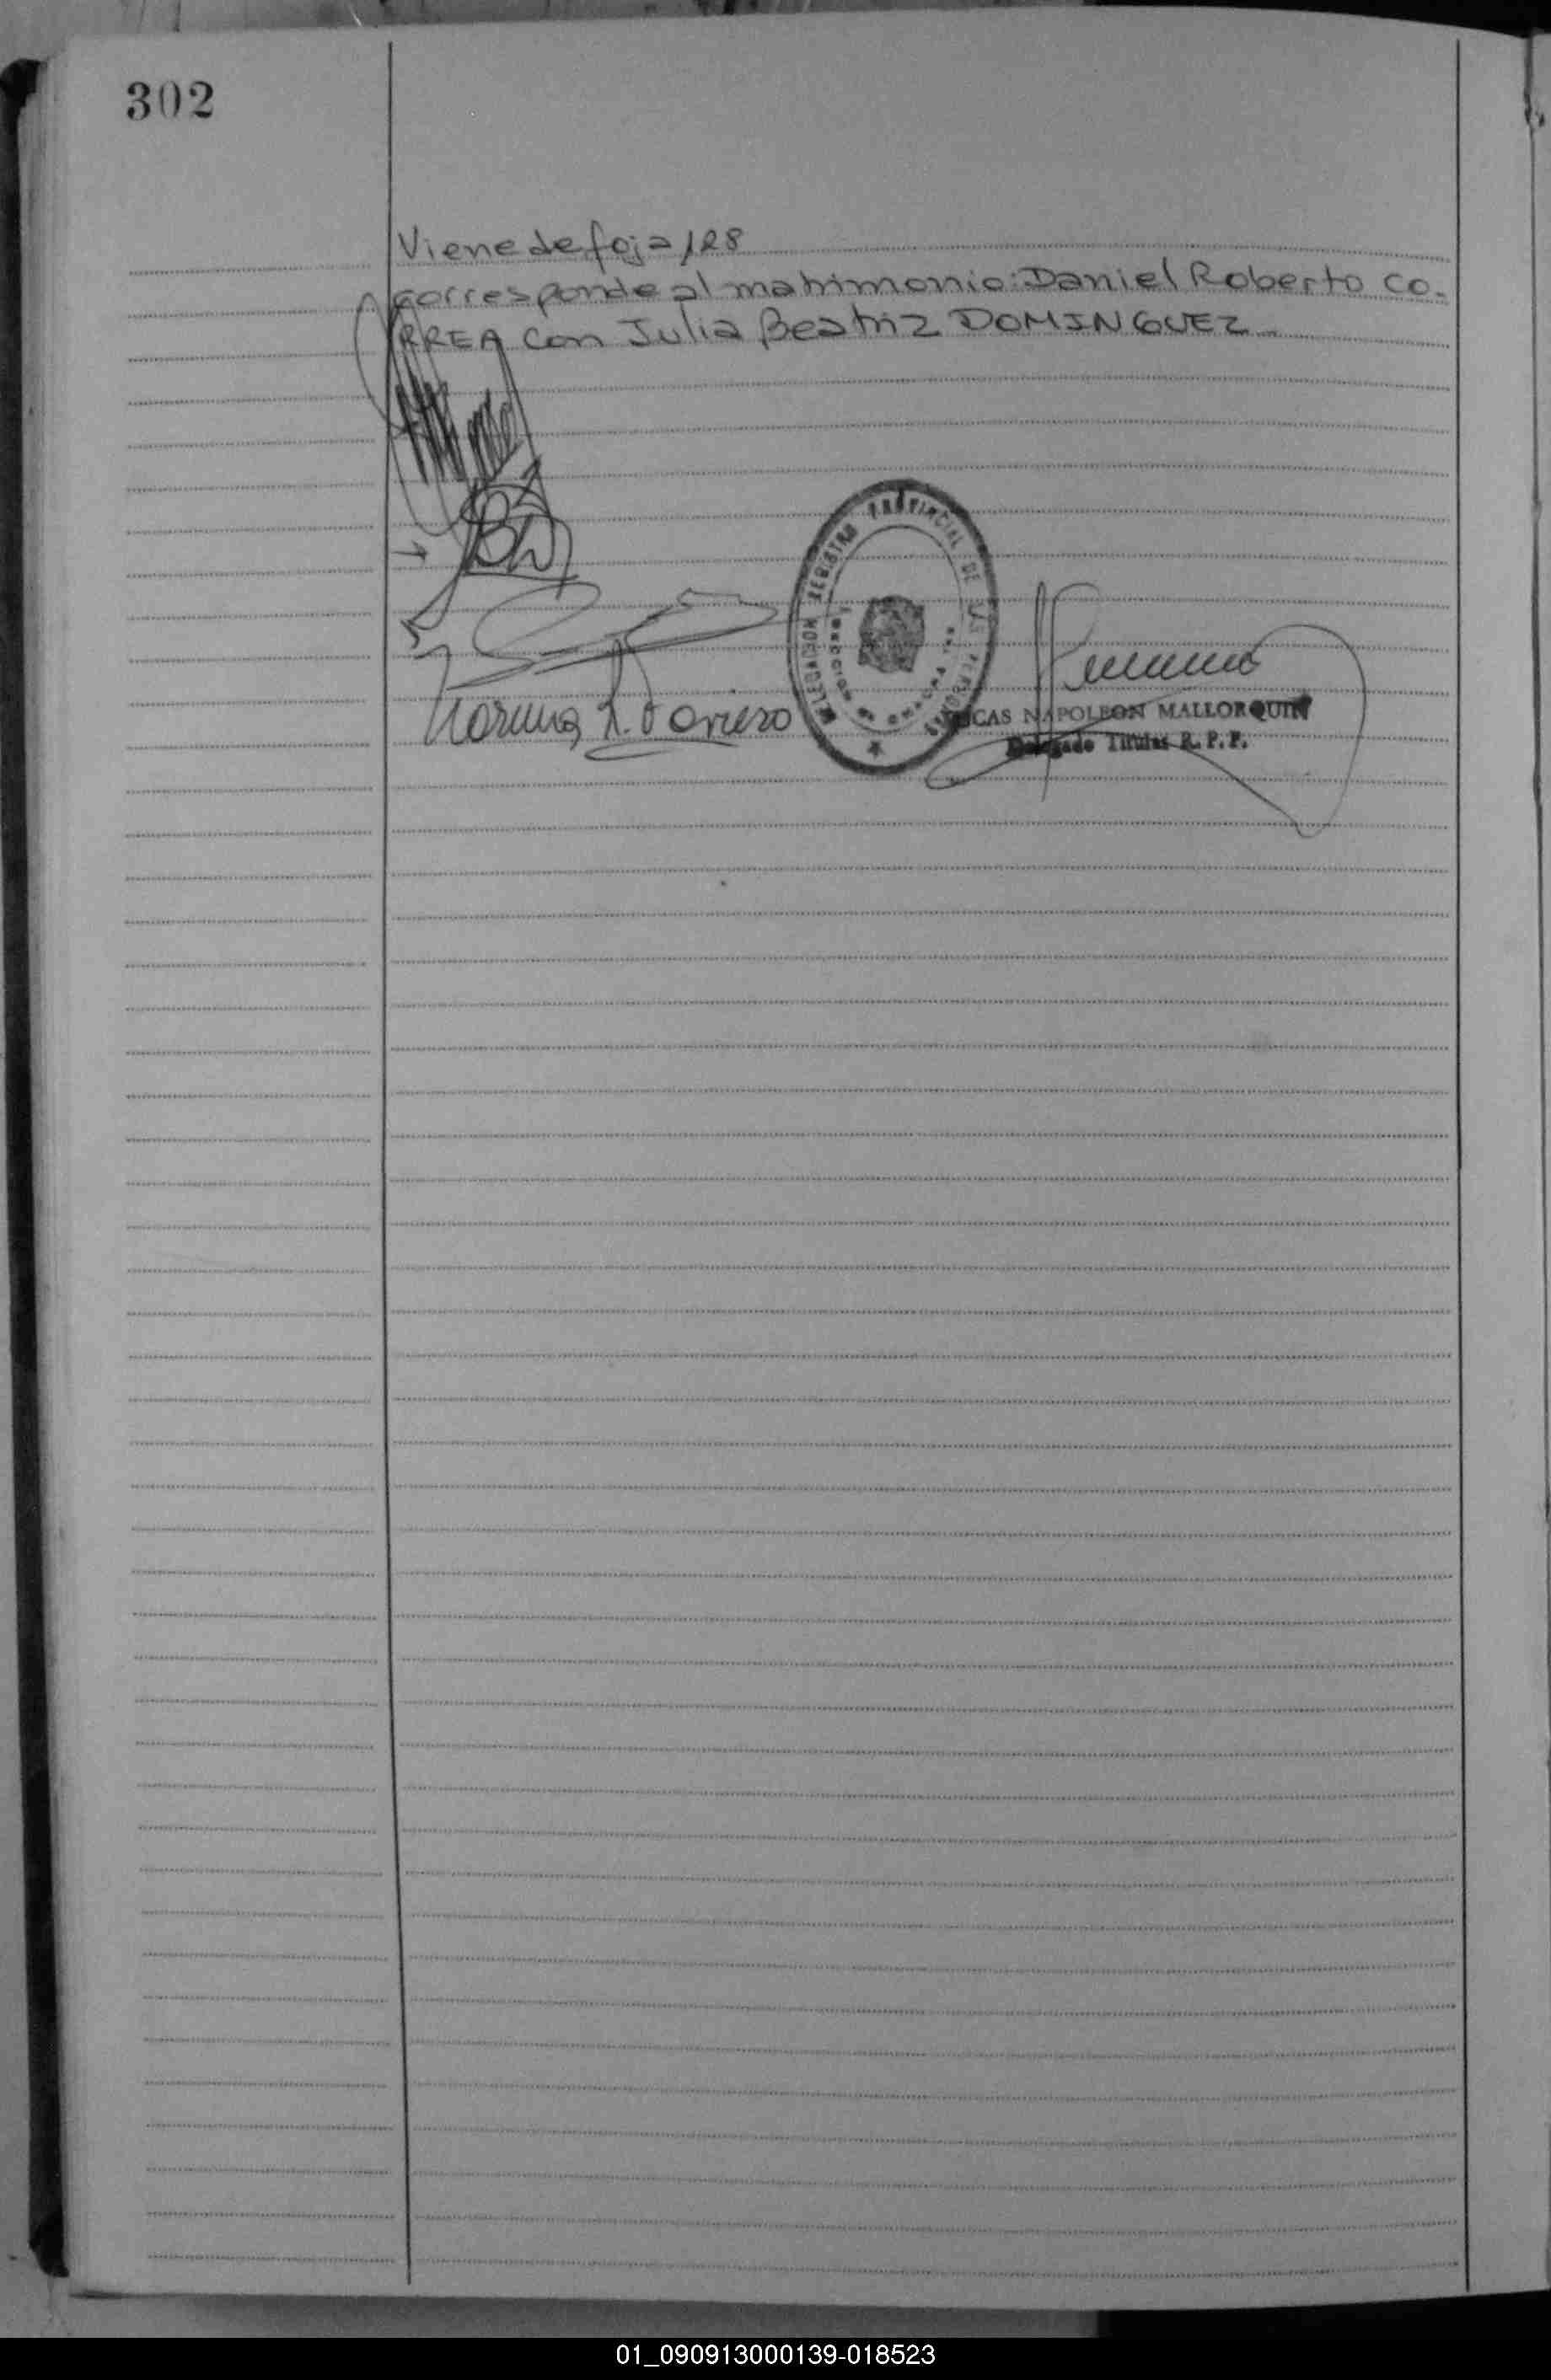 302
Viene de foja 128
Corresponde al matrimonio: Daniel Roberto CO-
RREA con Julia Beatriz DOMINGUEZ
REGISTRO PROVINCIAL DE LAS PERSONAS
DELEGACION
LUCAS NAPOLEON MALLORQUIN
Delegado Titular R. P. P.
01_090913000139-018523